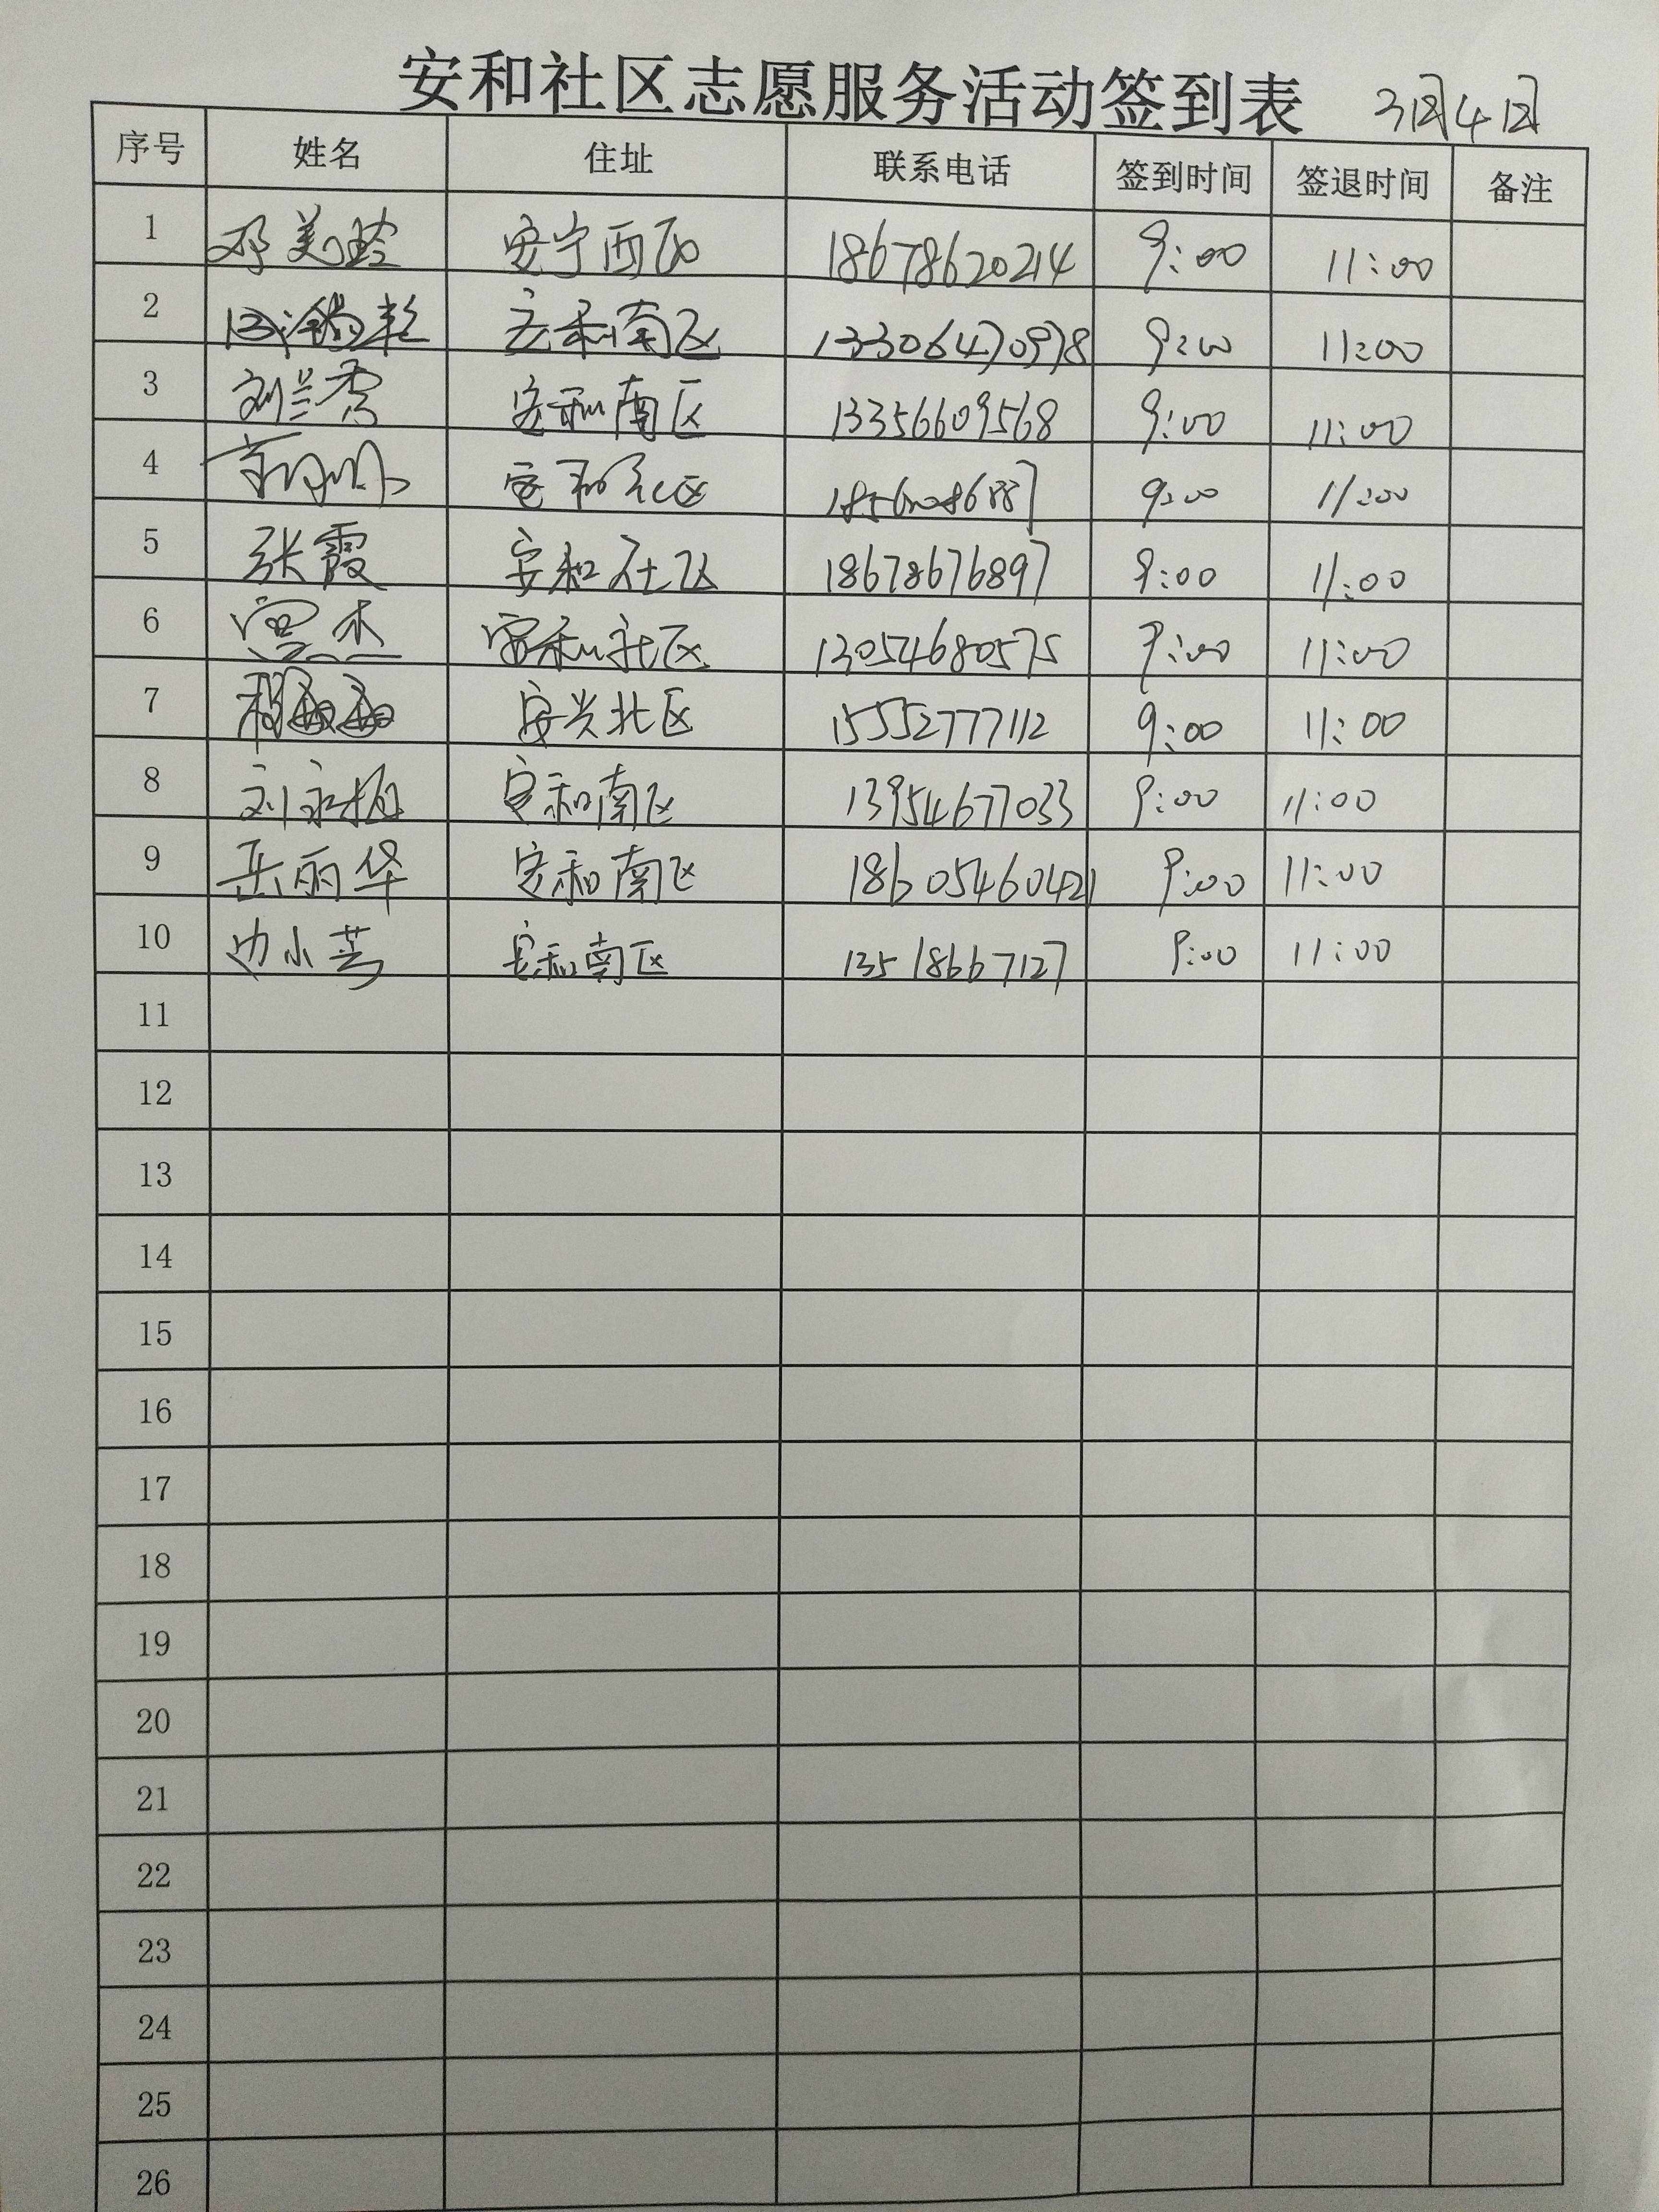 安和社区志愿服务活动签到表 3月4日
序号 姓名 住址 联系电话 签到时间 签退时间 备注
1 邓美玲 安宁西区 18678620214 9:00 11:00
2 安和南区 13306470978 9:00 11:00
3 刘兰秀 安和南区 13356609568 9:00 11:00
4 安和社区 9:00 11:00
5 张霞 安和社区 18678676897 9:00 11:00
6 安和社区 13054680575 9:00 11:00
7 安兴北区 15552777112 9:00 11:00
8 安和南区 13954677033 9:00 11:00
9 岳丽华 安和南区 18605460421 9:00 11:00
10 边小 安和南区 13518667127 9:00 11:00
11
12
13
14
15
16
17
18
19
20
21
22
23
24
25
26